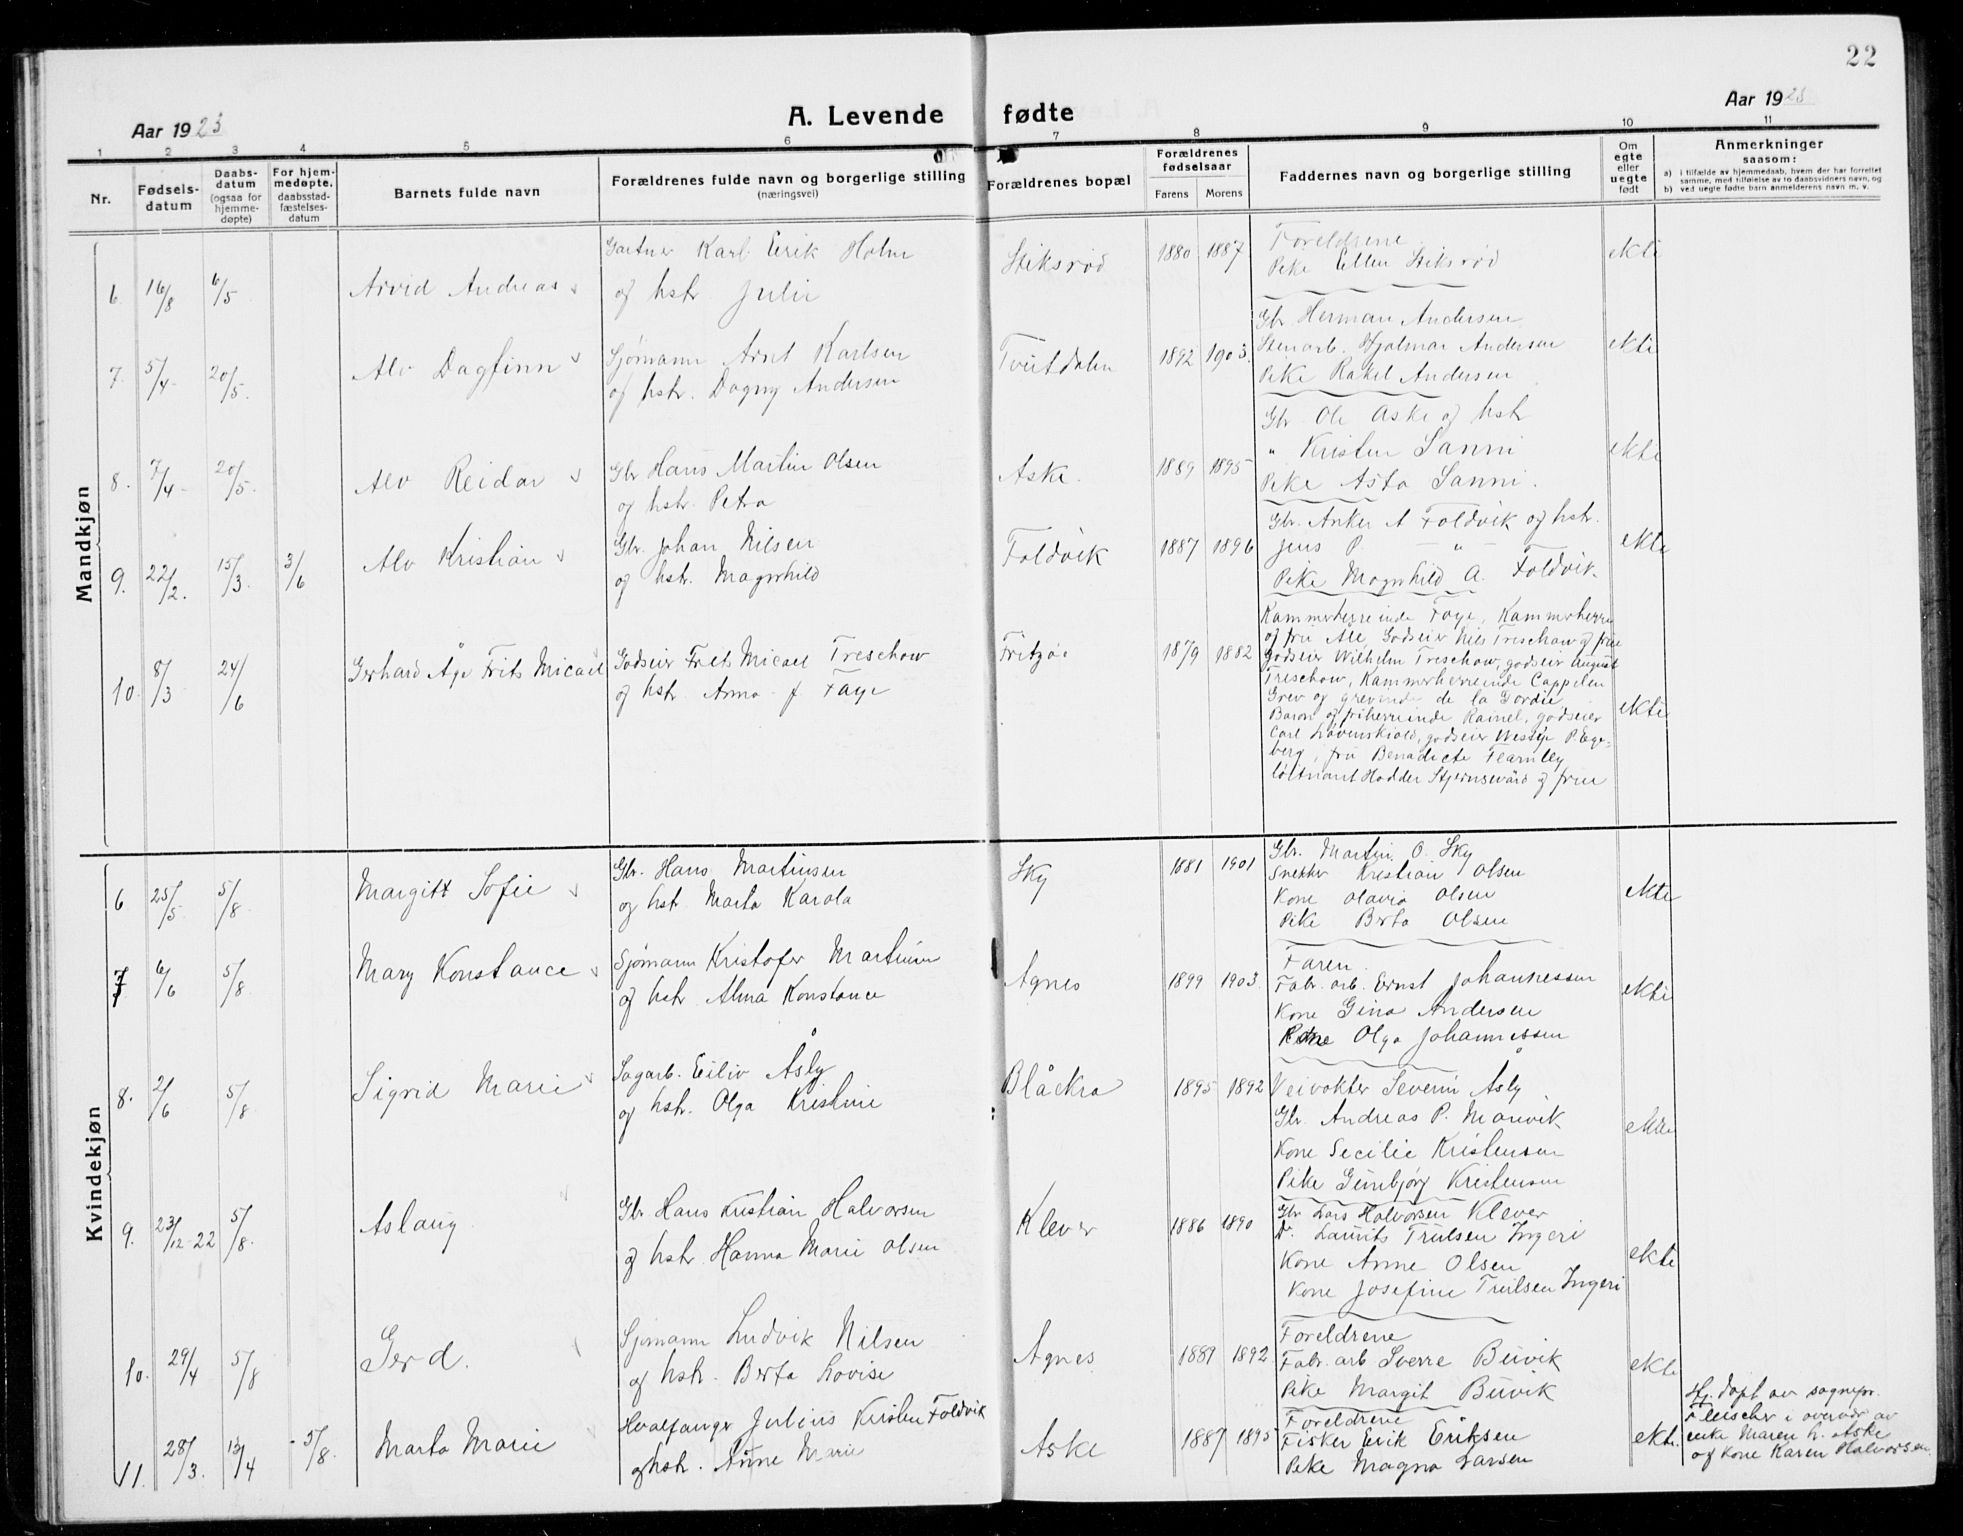 22
Aar 1923
A. Levende fødte
Aar 1923
1 2 3 4 5 6 7 8 9 10 11
Nr.
Fødsels-
datum
Daabs-
datum
(ogsaa for
hjemme-
døpte)
For hjem-
medøpte.
daabsstad-
fæstelses-
datum
Barnets fulde navn
Forældrenes fulde navn og borgerlige stilling
(næringsvei)
Forældrenes bopæl
Forældrenes
fødselsaar
Farens Morens
Faddernes navn og borgerlige stilling
Om
egte
eller
uegte
født
Anmerkninger
saasom:
a) i tilfælde av hjemmedaab, hvem der har forrettet
samme, med tilføielse av to daabsvidners navn, og
b) ved uegte fødte barn anmelderens navn m. v.
Mandkjøn
6. 16/8 6/5 Arvid Andreas
Gartner Karl Eirik Holm
og hstr. Julie
Stiksrød 1880 1887
Foreldrene
Pike Ellen Stiksrød
ekte
7. 5/4 20/5. Alv Dagfinn
Sjømann Arnt Karlsen
og hstr. Dagny Andersen
Tveitdalen 1892 1903.
Gbr. Herman Andersen
Stenarb. Hjalmar Andersen
Pike Rakel Andersen
ekte
8. 7/4 20/5. Alv Reidar
Gbr Hans Martin Olsen
og hstr. Petra
Aske. 1889 1895
Gbr Ole Aske og hstr
" Kristen Sanni
Pike Asta Sanni.
ekte
9. 22/2. 15/3. 3/6 Alv Kristian
Gbr. Johan Nilsen
og hstr. Magnhild
Foldvik 1887 1896
Gbr. Anker A Foldvik og hstr.
Jens P. — " —
Pike Magnhild A. Foldvik
ekte
10. 8/3 24/6 Gerhard Åge Frits Micael
Godseier Frits Micael Treschow
og hstr. Anna f. Faye
Fritzøe 1879 1882
Kammerherreinde Faye, Kammerherre
og fru Ale, Godseier Nils Treschow og frue
godseier Wilhelm Treschow, godseier August
Treschow, Kammerherreinde Cappelen
Grev og grevinde de la Gardie
Baron og friherreinde Ramel, godseier
Carl Løvenskiold, godseier Westye P. Ege-
berg, fru Benedicte Fearnley
løitnant Hodder Stjernswärd og frue
ekte
Kvindekjøn
6 25/5 5/8 Margitt Sofie
Gbr. Hans Martinsen
og hst. Marta Karola
Sky 1881 1901
Gbr. Martin O. Sky
Snekker Kristian Olsen
Kone Olavia Olsen
Pike Berta Olsen
ekte
7 6/6 5/8 Mary Konstance
Sjømann Kristofer Martinsen
og hstr Alma Konstance
Agnes 1899 1903.
Faren.
Fabr. arb. Ernst Johannessen
Kone Gina Andersen
Kone Olga Johannessen
ekte
8. 2/6 5/8 Sigrid Marie
Sagarb. Eiliv Åsly
og hstr. Olga Kristine
Blåekra 1895 1892
Veivokter Severin Åsly
Gbr. Andreas P. Manvik
Kone Secilie Kristensen
Pike Gunbjørg Kristensen
ekte
9. 23/12-22 5/8. Aslaug
Gbr. Hans Kristian Halvorsen
og hstr Hanna Marie Olsen
Klever 1886 1890
Gbr Lars Halvorsen Klever
Do Laurits Trulsen Ingeri
Kone Anne Olsen
Kone Josefine Trulsen Ingeri
ekte
10. 29/4 5/8 Gerd.
Sjømann Ludvik Nilsen
og hstr. Berta Lovise
Agnes 1889 1892
Foreldrene
Fabr. arb Sverre Buvik
Pike Margit Buvik
ekte
11. 28/3. 13/4 5/8. Marta Marie
Hvalfanger Julius Kristen Foldvik
og hstr. Anne Marie
Aske 1887 1895
Foreldrene
Fisker Erik Eriksen
Pike Magna Larsen
ekte.
Hj. døpt av sognepr.
Fleischer i overvær av
enke Maren L. Aske
og Kone Karen Halvorsen